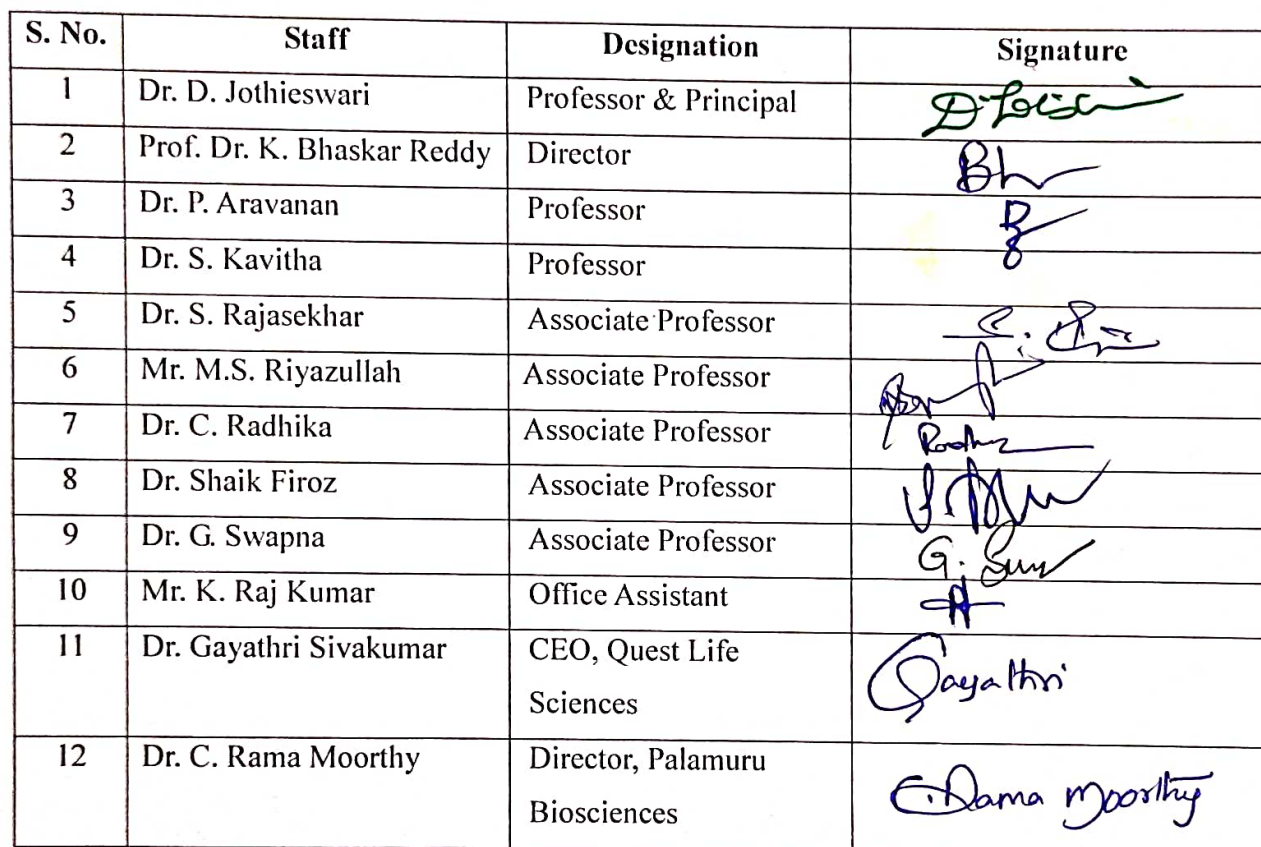 S. No. Staff Designation Signature
1 Dr. D. Jothieswari Professor & Principal
2 Prof. Dr. K. Bhaskar Reddy Director
3 Dr. P. Aravanan Professor
4 Dr. S. Kavitha Professor
5 Dr. S. Rajasekhar Associate Professor
6 Mr. M.S. Riyazullah Associate Professor
7 Dr. C. Radhika Associate Professor
8 Dr. Shaik Firoz Associate Professor
9 Dr. G. Swapna Associate Professor
10 Mr. K. Raj Kumar Office Assistant
11 Dr. Gayathri Sivakumar CEO, Quest Life Gayathri
Sciences
12 Dr. C. Rama Moorthy Director, Palamuru C. Rama Moorthy
Biosciences